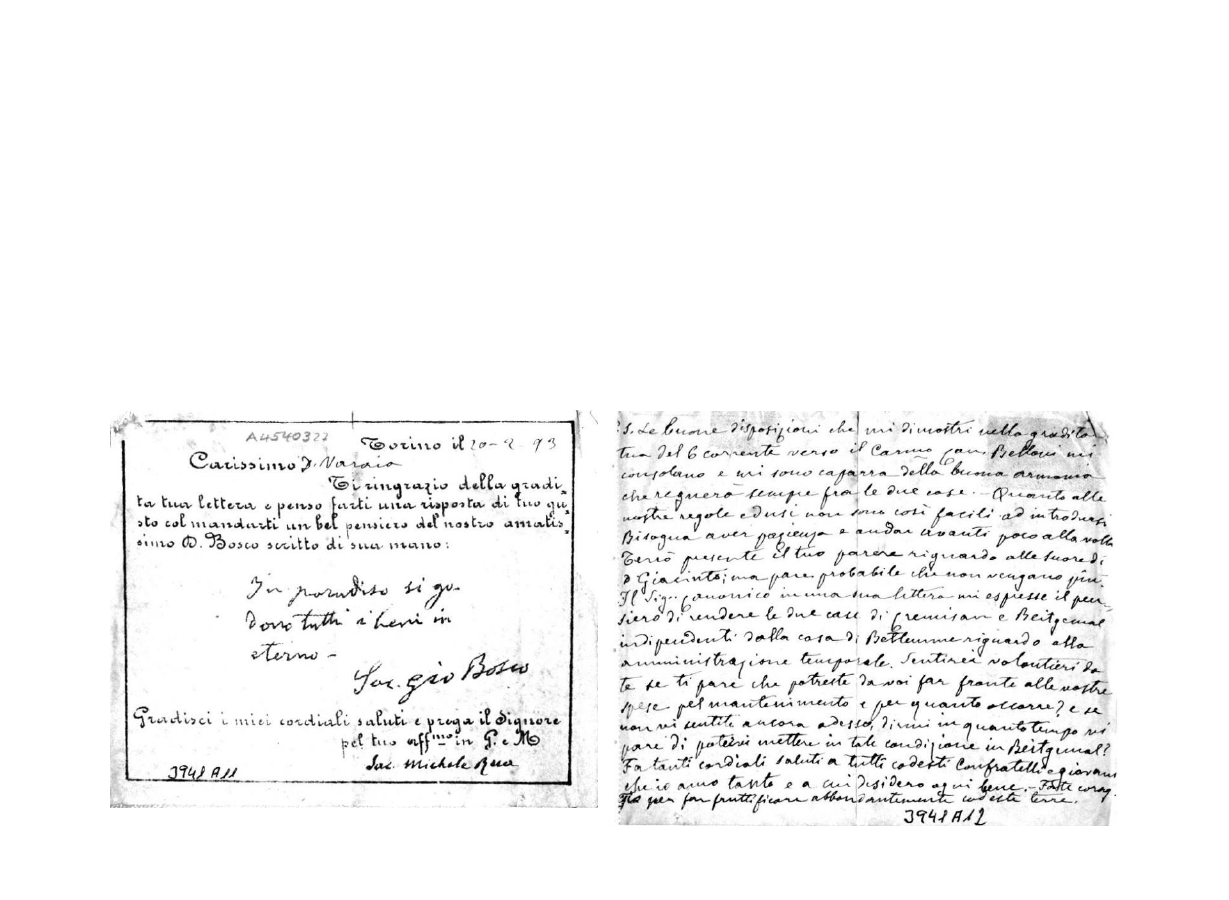 A4540322
Torino il 20-2-93
Carissimo D. Varaia
Ti ringrazio della gradi-
ta tua lettera e penso farti una risposta di tuo gu-
sto col mandarti un bel pensiero del nostro amatis-
simo D. Bosco scritto di sua mano:
In paradiso si go-
dono tutti i beni in
eterno -
Sac. Gio Bosco
Gradisci i miei cordiali saluti e prega il Signore
pel tuo aff.mo in G. e M
Sac. Michele Rua
3948 A11
S. Le buone disposizioni che mi dimostri nella gradita
tua del 6 corrente verso il Carmo Can. Belloni mi
consolano e mi sono caparra della buona armonia
che regnerà sempre fra le due case. - Quanto alle
nostre regole ed usi non sono così facili ad introdursi
Bisogna aver pazienza e andar avanti poco alla volta
Terrò presente il tuo parere riguardo alle suore di
D Giacinto; ma pare probabile che non vengano più.
Il Sig. Canonico in una sua lettera mi espresse il pen-
siero di rendere le due case di Cremisan e Beitgemal
indipendenti dalla casa di Betlemme riguardo alla
amministrazione temporale. Sentirei volontieri da
te se ti pare che potreste da voi far fronte alle vostre
spese pel mantenimento e per quanto occorre? e se
non vi sentite ancora adesso, dirmi in quanto tempo vi
pare di potervi mettere in tale condizione in Beitgemal?
Fa tanti cordiali saluti a tutti codesti Confratelli e giovani
che io amo tanto e a cui desidero ogni bene. - Fate corag
gio per far fruttificare abbondantemente codeste terre.
3948 A12